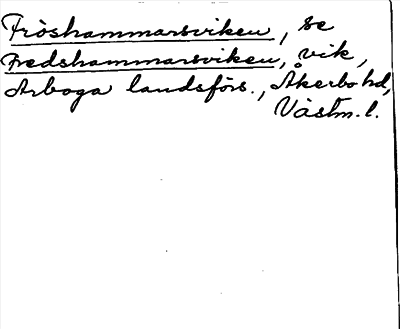 Fröshammarsviken, se
Fredshammarsviken, vik,
Arboga landsförs., Åkerbo hd,
Västm. l.